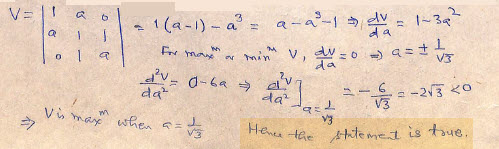 V = | 1 a 0 | = 1(a-1) - a³ = a - a³ - 1 ⇒ dv/da = 1 - 3a²
| a 1 1 |
| 0 1 a |
For maxᵐ or minᵐ V, dv/da = 0 ⇒ a = ± 1/√3
d²v/da² = 0 - 6a ⇒ d²v/da² ]ₐ₌₁/√₃ = - 6/√3 = -2√3 < 0
⇒ V is maxᵐ when a = 1/√3
Hence the statement is true.